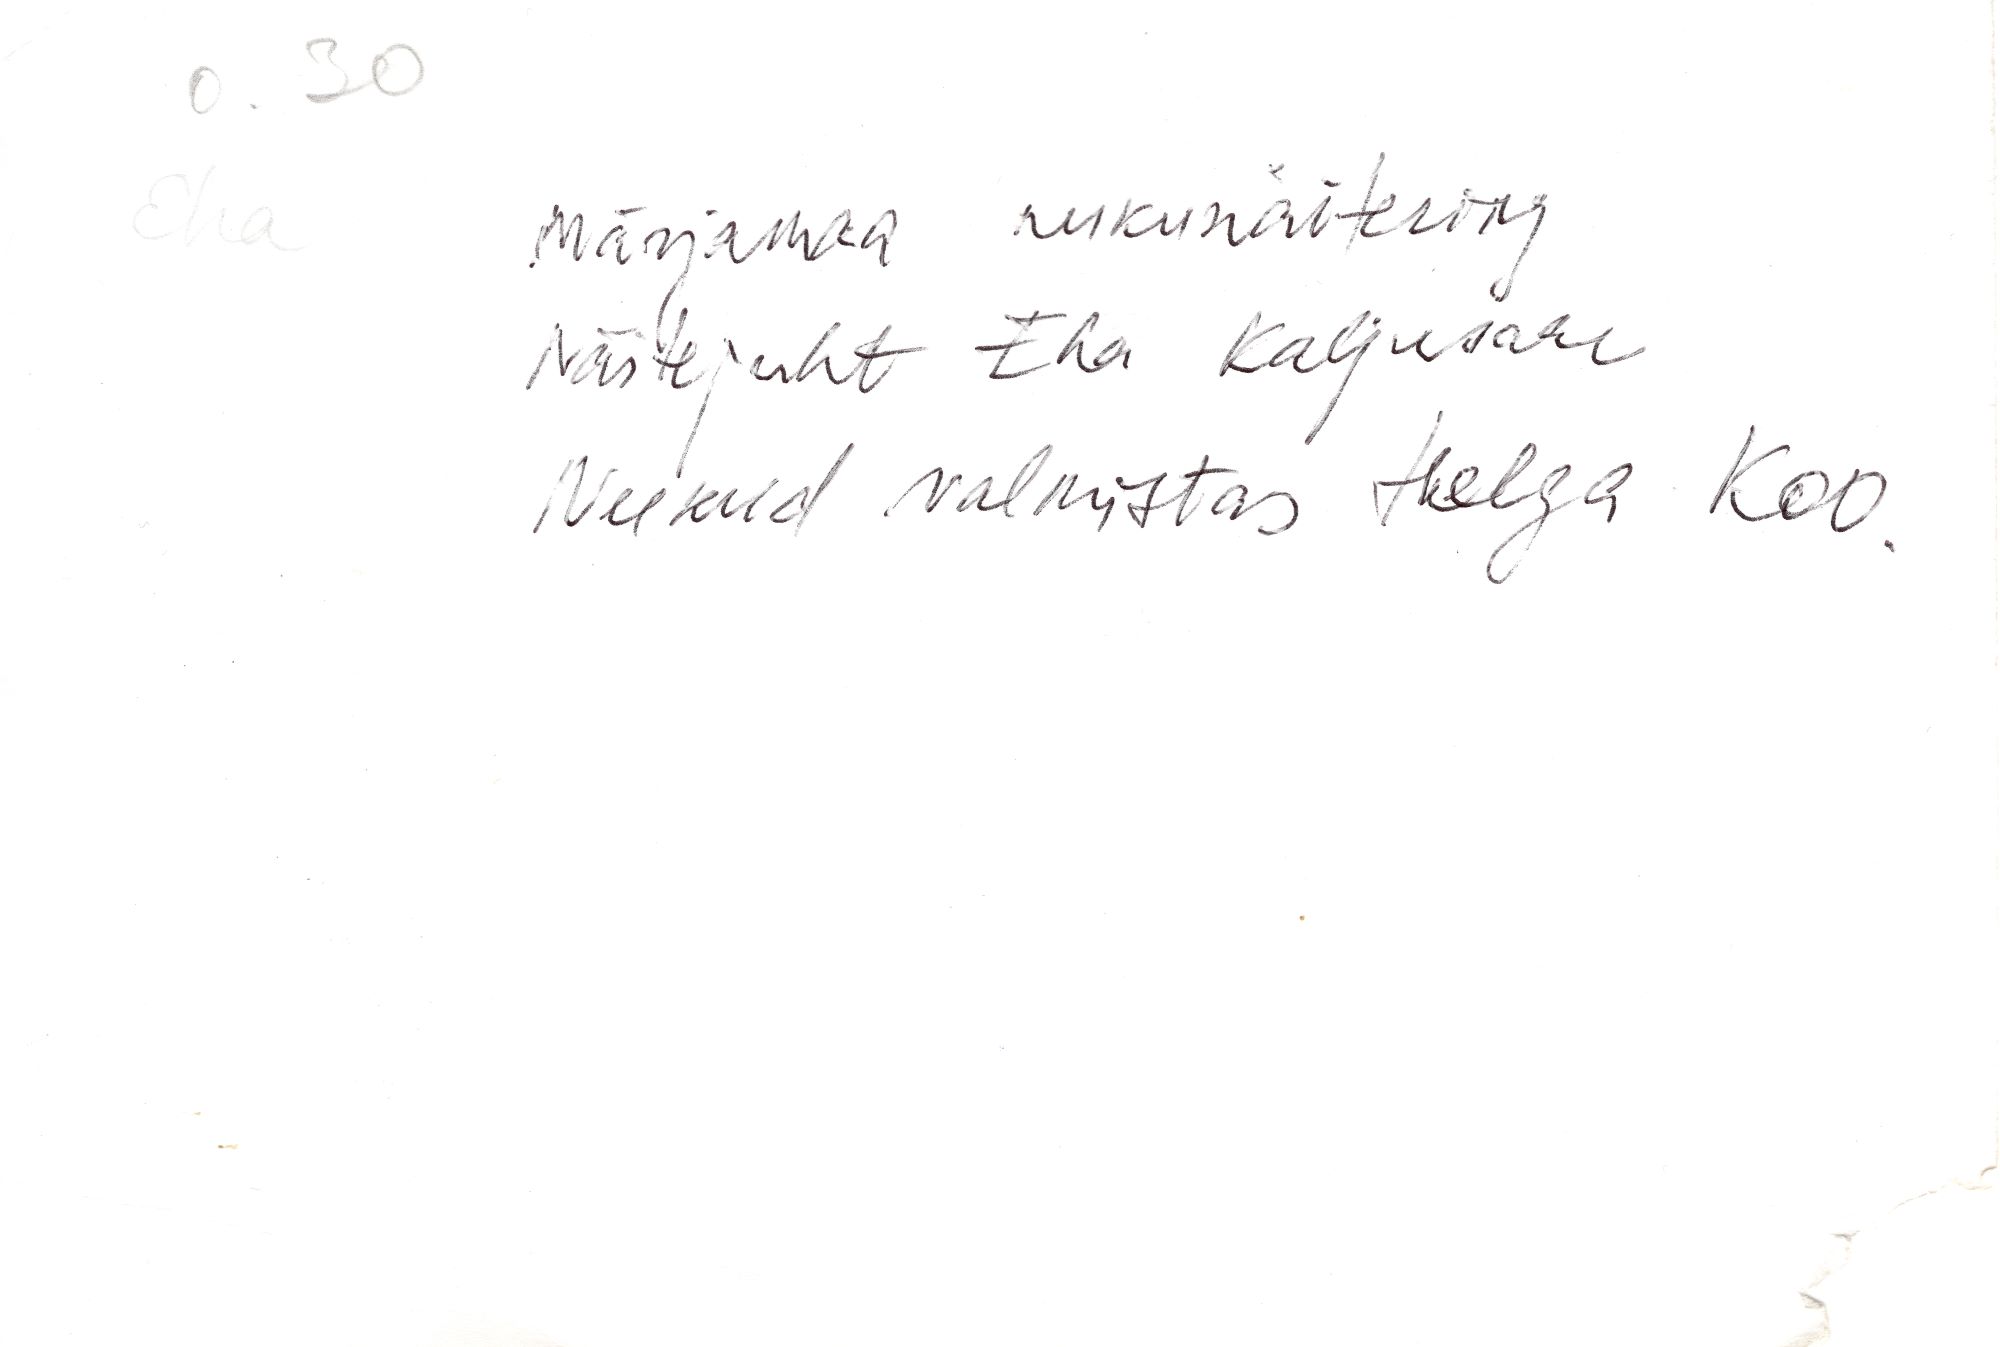 0.30
Eha
Märjamaa nukunäitering
Näitejuht Eha Kaljusaare
Nukud valmistas Helga Koo.